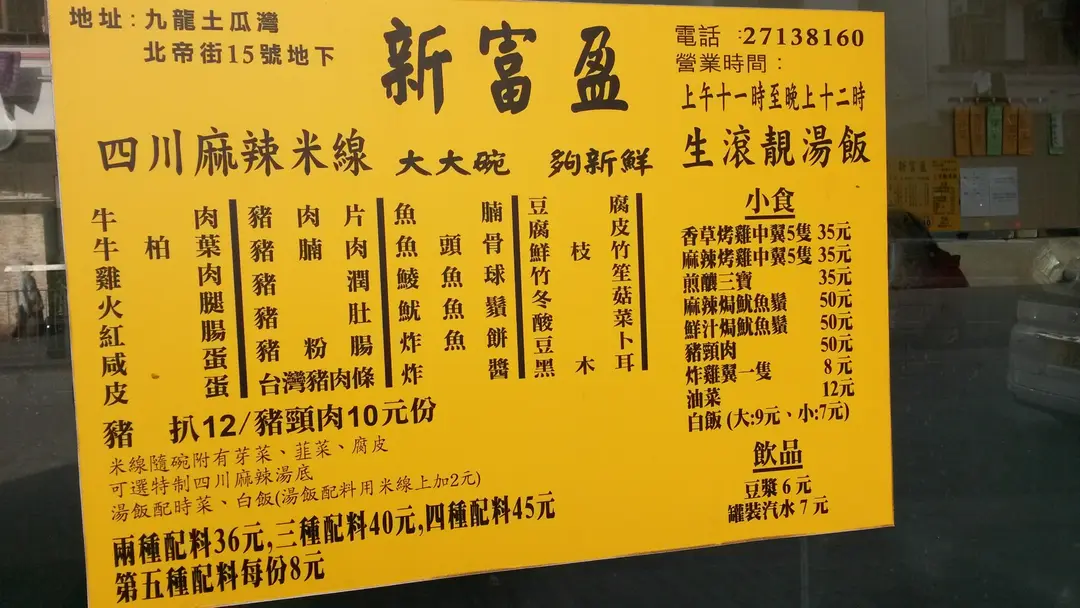 地址:九龍土瓜灣
北帝街15號地下
新富盈
電話:27138160
營業時間:
上午十一時至晚上十二時
四川麻辣米線 大大碗 夠新鮮
生滾靚湯飯
牛肉
牛柏葉
雞肉
火腿
紅腸
咸蛋
皮蛋
豬肉片
豬腩肉
豬潤
豬肚
豬粉腸
台灣豬肉條
魚腩
魚頭骨
鯪魚球
魷魚鬚
炸魚餅
炸醬
豆腐
腐皮
鮮枝竹
竹笙
冬菇
酸菜
豆卜
黑木耳
豬 扒12/豬頸肉10元份
米線隨碗附有芽菜、韮菜、腐皮
可選特制四川麻辣湯底
湯飯配時菜、白飯(湯飯配料用米線上加2元)
兩種配料36元,三種配料40元,四種配料45元
第五種配料每份8元
小食
香草烤雞中翼5隻 35元
麻辣烤雞中翼5隻 35元
煎釀三寶 35元
麻辣焗魷魚鬚 50元
鮮汁焗魷魚鬚 50元
豬頸肉 50元
炸雞翼一隻 8元
油菜 12元
白飯 (大:9元、小:7元)
飲品
豆漿 6 元
罐裝汽水 7 元